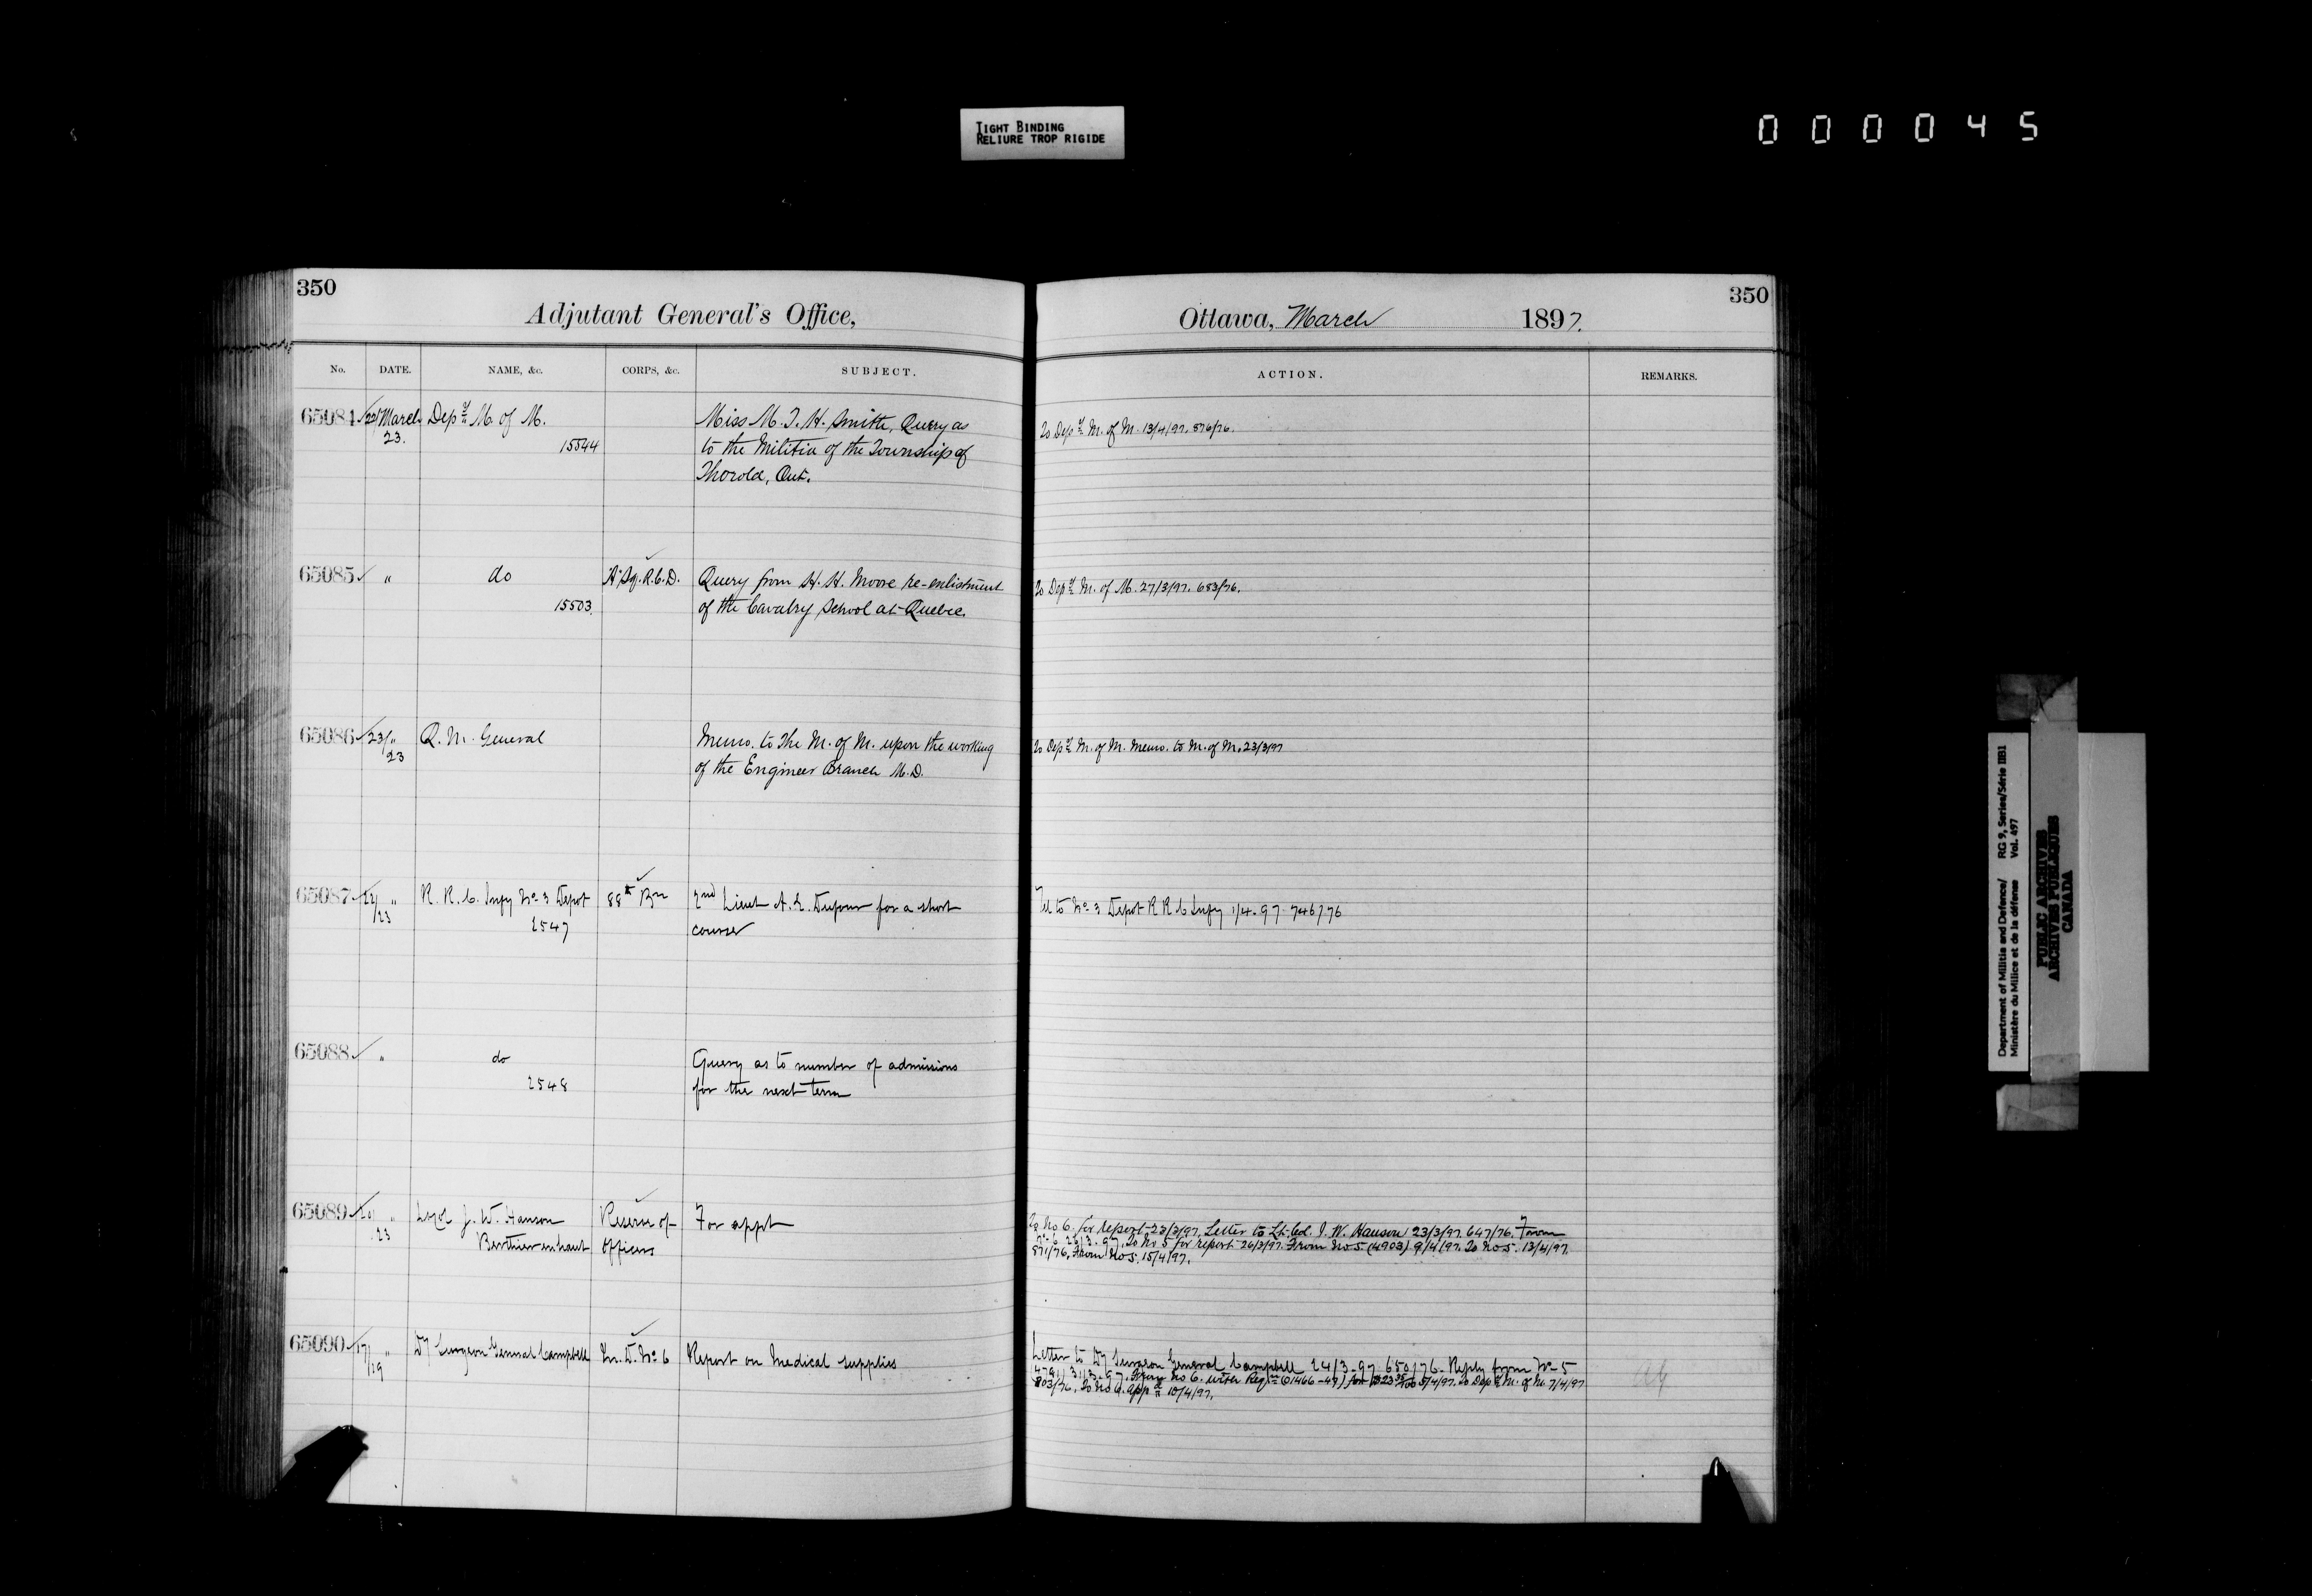 TIGHT BINDING
RELIURE TROP RIGIDE
000045
350
Adjutant General's Office,
No. DATE. NAME, &c. CORPS, &c. SUBJECT.
65084 22/March Depy M. of M. Miss M. J. H. Smith, Query as
23. 15544 to the Militia of the Township of
Thorold, Ont.
65085 " do "A" Sq. R.C.D. Query from H. H. Moore re-enlistment
15503. of the Cavalry School at Quebec.
65086 23/" Q. M. General Memo. to The M. of M. upon the working
23 of the Engineer Branch M.D.
65087 22/" R. R. C. Infy No 3 Depot 88th Bn 2nd Lieut A. E. for a short
23 2547 course
65088 " do Query as to number of admissions
2548 for the next term
65089 " J. W. Hanson Reserve of For appt
23 Berthier en haut Officers
65090 17/" Dy Surgeon General Campbell M. D. No 6 Report on Medical supplies
19
350
Ottawa, March 1897.
ACTION. REMARKS.
To Depy M. of M. 13/4/97. 876/76.
To Depy M. of M. 27/3/97. 683/76.
To Depy M. of M. Memo. to M. of M. 23/3/97
Tel to No 3 Depot R R C Infy 1/4-97 746/76
To No 6. for report 23/3/97. Letter to Lt-Col. J. W. Hanson 23/3/97. 647/76. From
No 6 25/3-97. To No 5 for report 26/3/97. From No 5 (4903) 9/4/97. To No 5. 13/4/97.
871/76. From No 5. 15/4/97.
Letter to Dy Surgeon General Campbell 24/3-97 650/76. Reply from No 5
31/3-97. From No 6. with Reqn 5/4/97. To Depy M. of M. 7/4/97
803/76. To No 6. appd 10/4/97.
Department of Militia and Defence/ RG 9, Series/Série IIB1
Ministère du Milice et de la défense Vol. 497
PUBLIC ARCHIVES
ARCHIVES PUBLIQUES
CANADA